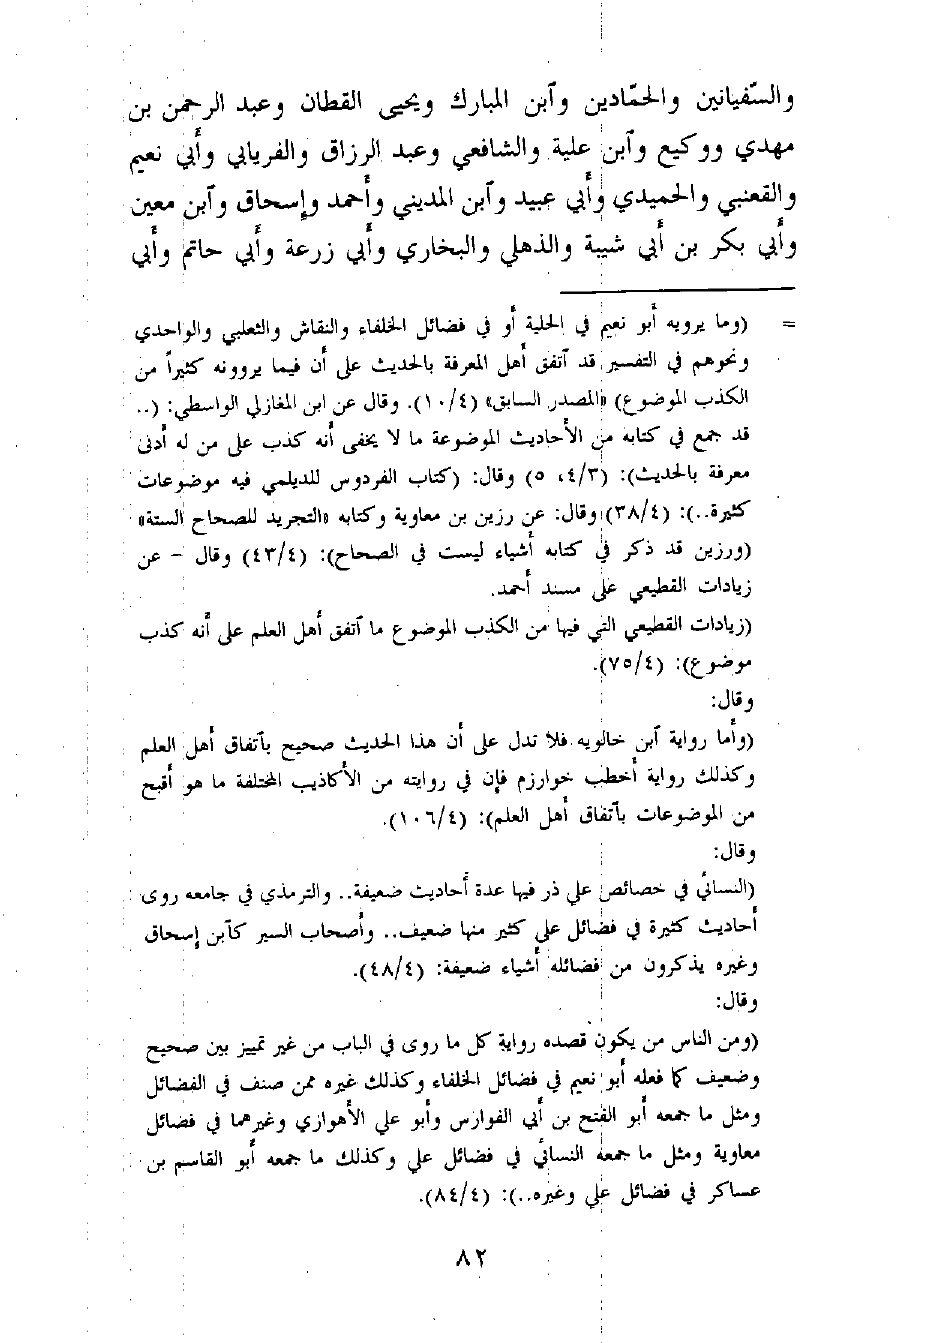 والسّفيانين والحمّادين وآبن المبارك ويحيى القطان وعبد الرحمن بن
مهدي ووكيع وآبن علية والشافعي وعبد الرزاق والفريابي وأبي نعيم
والقعنبي والحميدي وأبي عبيد وآبن المديني وأحمد وإسحاق وآبن معين
وأبي بكر بن أبي شيبة والذهلي والبخاري وأبي زرعة وأبي حاتم وأبي
= (وما يرويه أبو نعيم في الحلية أو في فضائل الخلفاء والنقاش والثعلبي والواحدي
ونحوهم في التفسير قد آتفق أهل المعرفة بالحديث على أن فيما يروونه كثيراً من
الكذب الموضوع) «المصدر السابق» (١٠/٤). وقال عن ابن المغازلي الواسطي: (..
قد جمع في كتابه من الأحاديث الموضوعة ما لا يخفى أنه كذب على من له أدنى
معرفة بالحديث): (٤/٣، ٥) وقال: (كتاب الفردوس للديلمي فيه موضوعات
كثيرة..): (٣٨/٤) وقال: عن رزين بن معاوية وكتابه «التجريد للصحاح الستة»
(ورزين قد ذكر في كتابه أشياء ليست في الصحاح): (٤٣/٤) وقال - عن
زيادات القطيعي على مسند أحمد.
(زيادات القطيعي التي فيها من الكذب الموضوع ما آتفق أهل العلم على أنه كذب
موضوع): (٧٥/٤).
وقال:
(وأما رواية آبن خالويه فلا تدل على أن هذا الحديث صحيح بآتفاق أهل العلم
وكذلك رواية أخطب خوارزم فإن في روايته من الأكاذيب المختلفة ما هو أقبح
من الموضوعات بآتفاق أهل العلم): (١٠٦/٤).
وقال:
(النسائي في خصائص علي ذر فيها عدة أحاديث ضعيفة.. والترمذي في جامعه روى
أحاديث كثيرة في فضائل علي كثير منها ضعيف.. وأصحاب السير كآبن إسحاق
وغيره يذكرون من فضائله أشياء ضعيفة: (٤٨/٤).
وقال:
(ومن الناس من يكون قصده رواية كل ما روى في الباب من غير تمييز بين صحيح
وضعيف كما فعله أبو نعيم في فضائل الخلفاء وكذلك غيره ممن صنف في الفضائل
ومثل ما جمعه أبو الفتح بن أبي الفوارس وأبو علي الأهوازي وغيرهما في فضائل
معاوية ومثل ما جمعه النسائي في فضائل علي وكذلك ما جمعه أبو القاسم بن
عساكر في فضائل علي وغيره..): (٨٤/٤).
٨٢